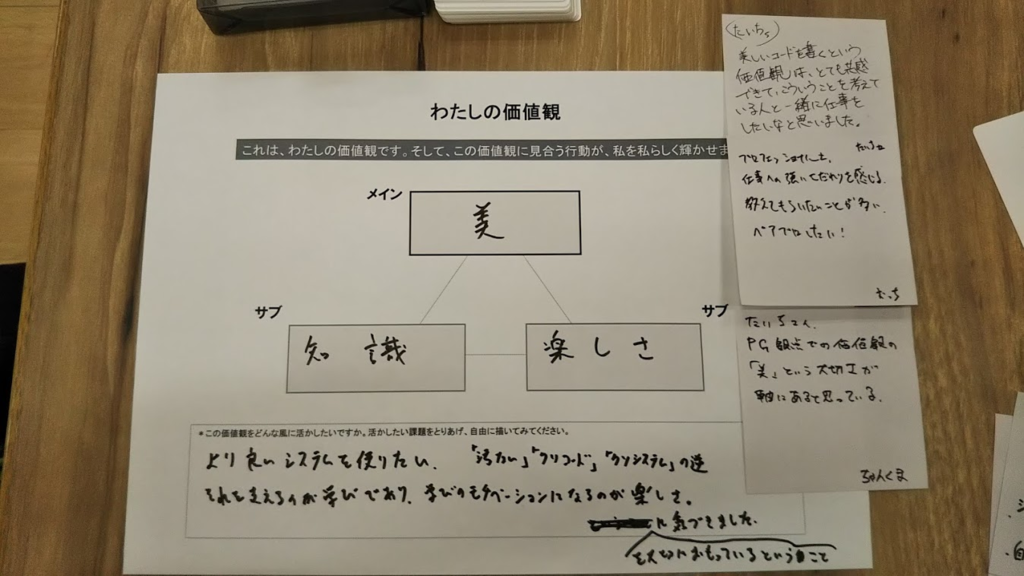 わたしの価値観
これは、わたしの価値観です。そして、この価値観に見合う行動が、私を私らしく輝かせま
メイン
美
サブ
知識
サブ
楽しさ
*この価値観をどんな風に活かしたいですか。活かしたい課題をとりあげ、自由に描いてみてください。
より良いシステムを作りたい。「汚ない」「クソコード」「クソシステム」の逆
それを支えるのが学びであり、学びのモチベーションになるのが楽しさ。
に気づきました。
を大切におもっているという こと
たいちょ
美しいコードを書くという
価値観は、とても共感
できて、こういうことを考えて
いる人と一緒に仕事を
したいなと思いました。
プロフェッショナルとして、
仕事への強いこだわりを感じる。
教えてもらいたいことが多い。
ペアプロしたい!
むっち
たいちょさん、
PG観点での価値観の
「美」という大切さが
軸にあると思っている。
ちゃんくま